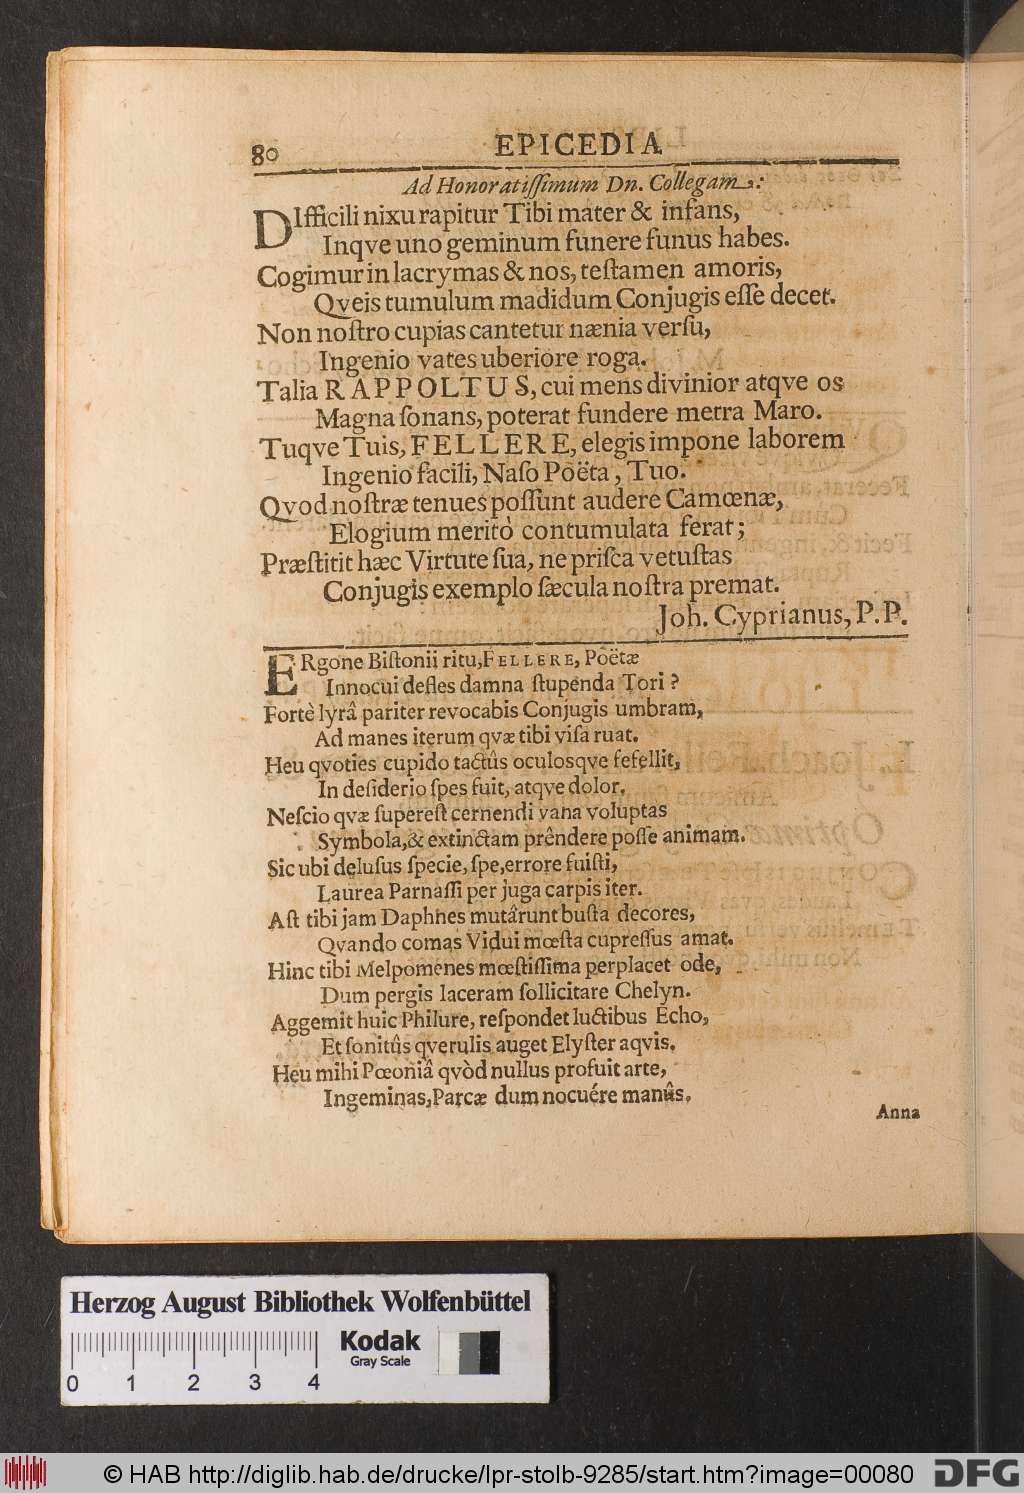 80 EPICEDIA
Ad Honoratiſſimum Dn. Collegam.:
DIfficili nixu rapitur Tibi mater & infans,
Inqve uno geminum funere funus habes.
Cogimur in lacrymas & nos, teſtamen amoris,
Qveis tumulum madidum Conjugis eſſe decet.
Non noſtro cupias cantetur nænia verſu,
Ingenio vates uberiore roga.
Talia RAPPOLTUS, cui mens divinior atqve os
Magna ſonans, poterat fundere metra Maro.
Tuqve Tuis, FELLERE, elegis impone laborem
Ingenio facili, Naſo Poëta, Tuo.
Qvod noſtræ tenues poſſunt audere Camœnæ,
Elogium meritò contumulata ferat;
Præſtitit hæc Virtute ſua, ne priſca vetuſtas
Conjugis exemplo ſæcula noſtra premat.
Joh. Cyprianus, P.P.
ERgone Biſtonii ritu, FELLERE, Poëtæ
Innocui defles damna ſtupenda Tori?
Fortè lyrâ pariter revocabis Conjugis umbram,
Ad manes iterum qvæ tibi viſa ruat.
Heu qvoties cupido tactûs oculosqve fefellit,
In deſiderio ſpes fuit, atqve dolor.
Neſcio qvæ ſupereſt cernendi vana voluptas
Symbola, & extinctam prêndere poſſe animam.
Sic ubi deluſus ſpecie, ſpe, errore fuiſti,
Laurea Parnaſſi per juga carpis iter.
Aſt tibi jam Daphnes mutârunt buſta decores,
Qvando comas Vidui mœſta cupreſſus amat.
Hinc tibi Melpomenes mœſtiſſima perplacet ode,
Dum pergis laceram ſollicitare Chelyn.
Aggemit huic Philure, reſpondet luctibus Echo,
Et ſonitûs qverulis auget Elyſter aqvis.
Heu mihi Pœoniâ qvòd nullus profuit arte,
Ingeminas, Parcæ dum nocuére manûs.
Anna
Herzog August Bibliothek Wolfenbüttel
Kodak
Gray Scale
0 1 2 3 4
© HAB http://diglib.hab.de/drucke/lpr-stolb-9285/start.htm?image=00080
DFG